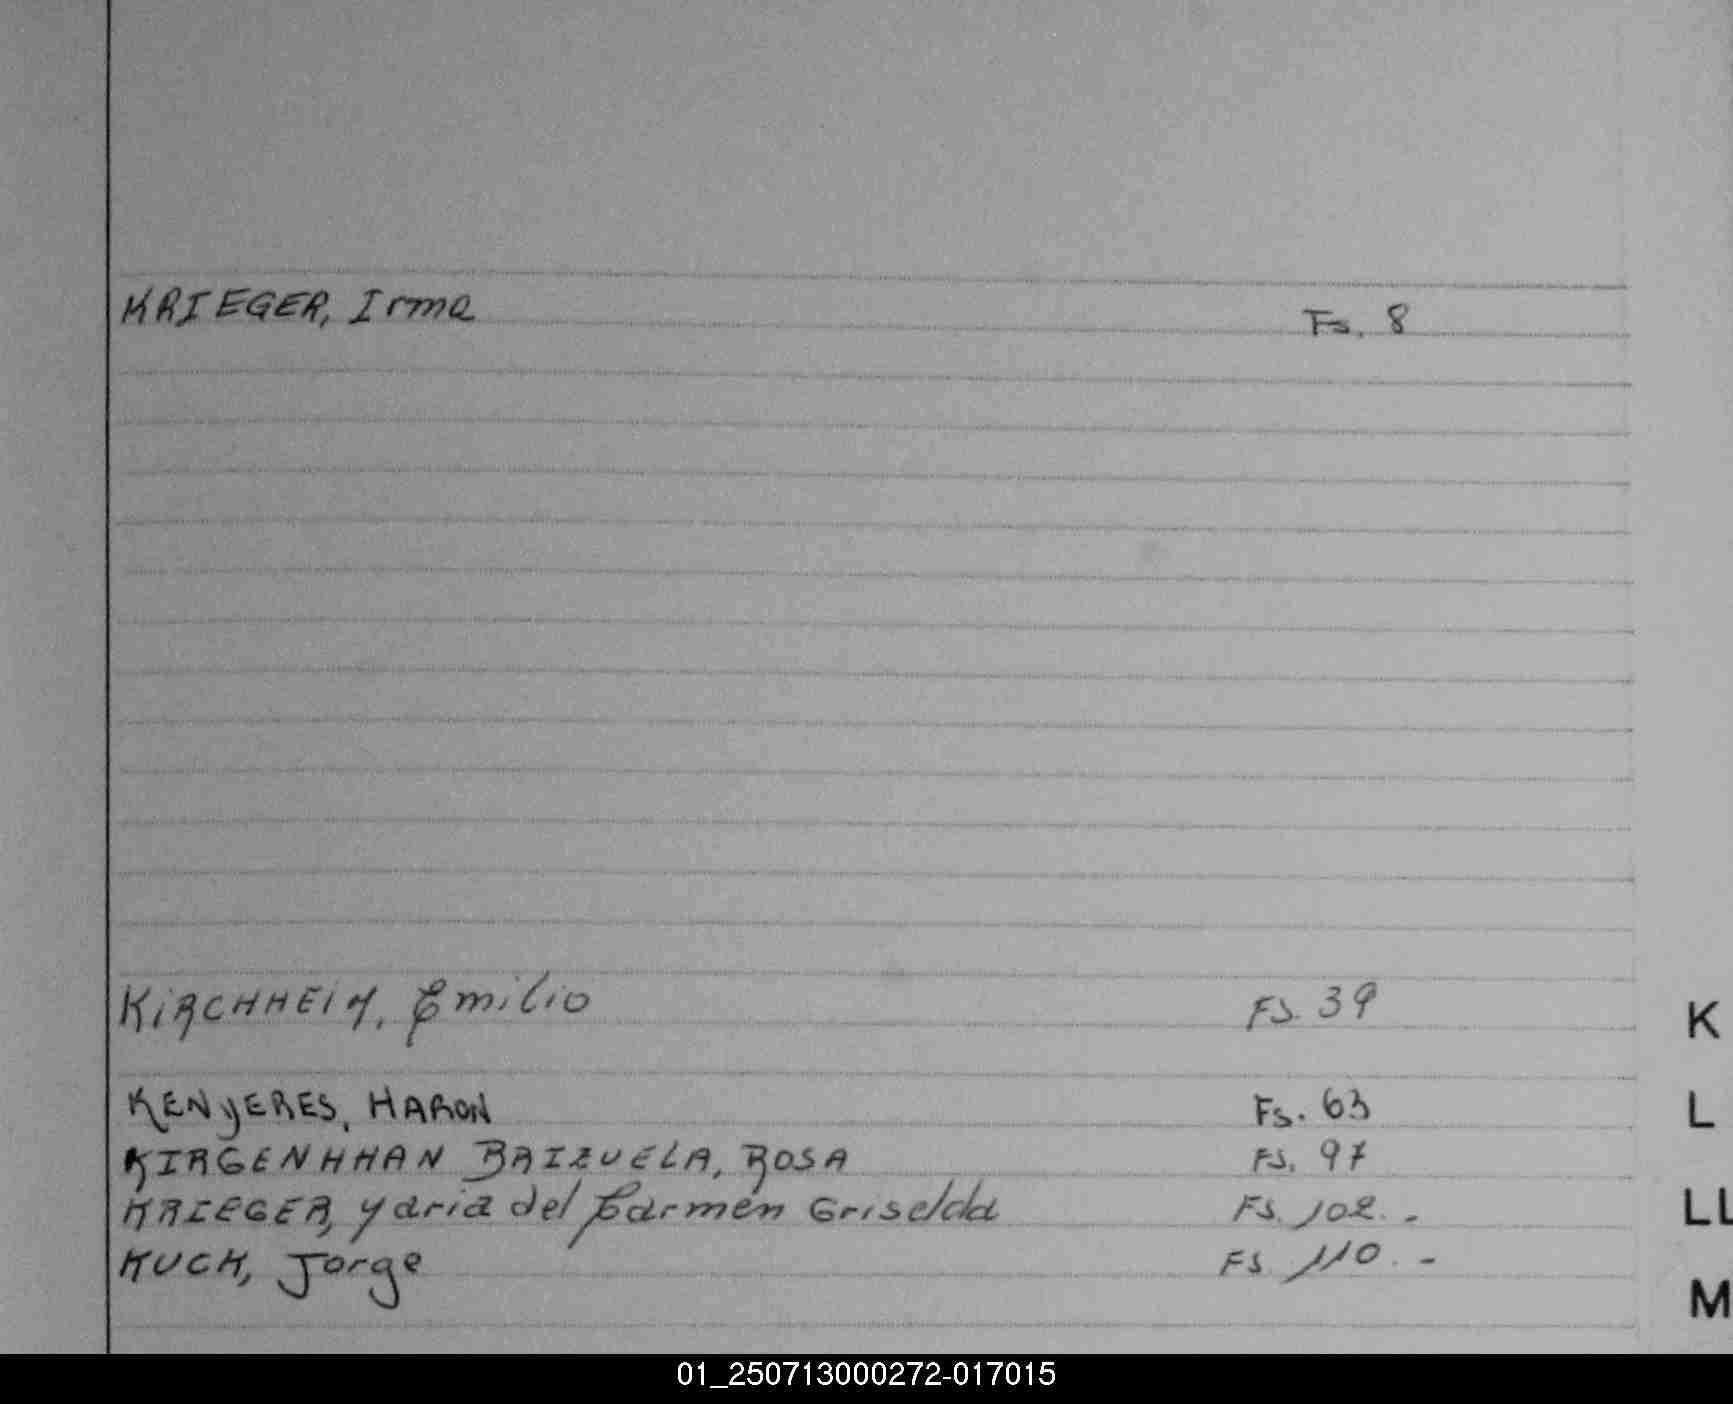 KRIEGER, Irma Fs. 8
KiRCHHEiM, Emilio FS. 39 K
KENyERES, HARON Fs. 63 L
KIRGENHHAN BRIZUELA, ROSA FS. 97
KRIEGER, Maria del Carmen Griselda FS. 102.- LL
KUCK, Jorge FS. 110.-
M
01_250713000272-017015